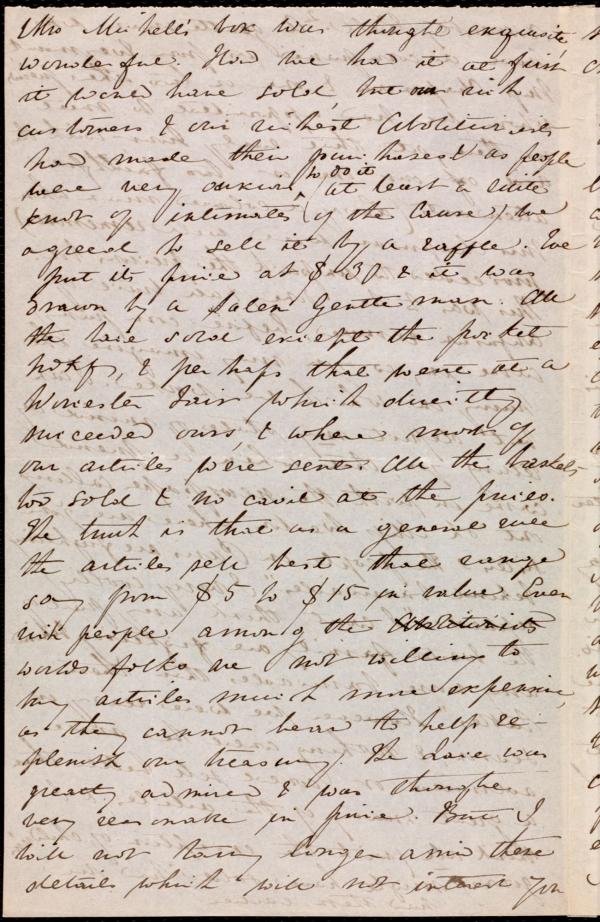 Mrs Michell's box was thought exquisite
wonderful. Had we had it at first
it would have sold, but our rich
customers & our richest Abolitionists
had made their purchases & as people
were very anxious ^to do it (at least a little
knot of intimates of the Cause) we
agreed to sell it by a raffle. We
put its price at $30 & it was
drawn by a Salem Gentleman. All
the lace sold except the pocket
hdkfs, & perhaps that were at a
Worcester Fair which directly
succeeded ours, & where most of
our articles were sent. All the baskets
too sold & no cavil at the prices.
The truth is that as a general rule
the articles sell best that range
say from $5 to $15 in value. Even
rich people among the Abolitionists
worlds folks are not willing to
buy articles much more expensive,
as they cannot bear to help re-
plenish our treasury. The Lace was
greatly admired & was thought
very reasonable in price. But I
will not tarry longer amid these
details which will not interest you